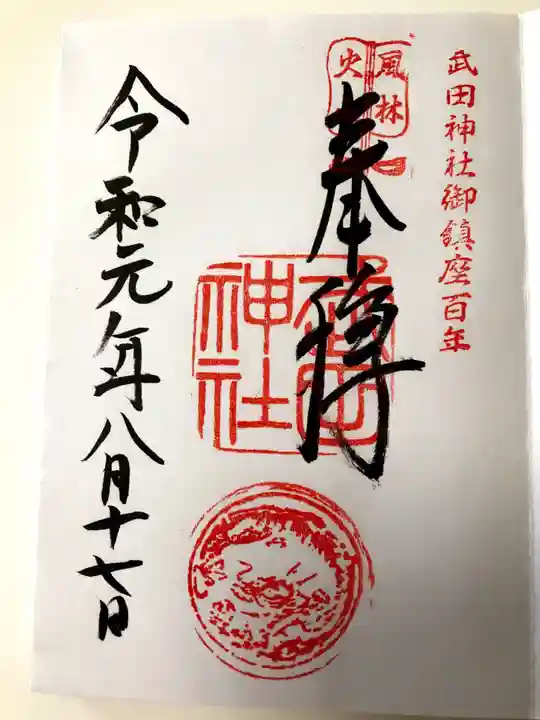 武田神社御鎮座百年
風林
火
奉拝
武田
神社
令和元年八月十七日